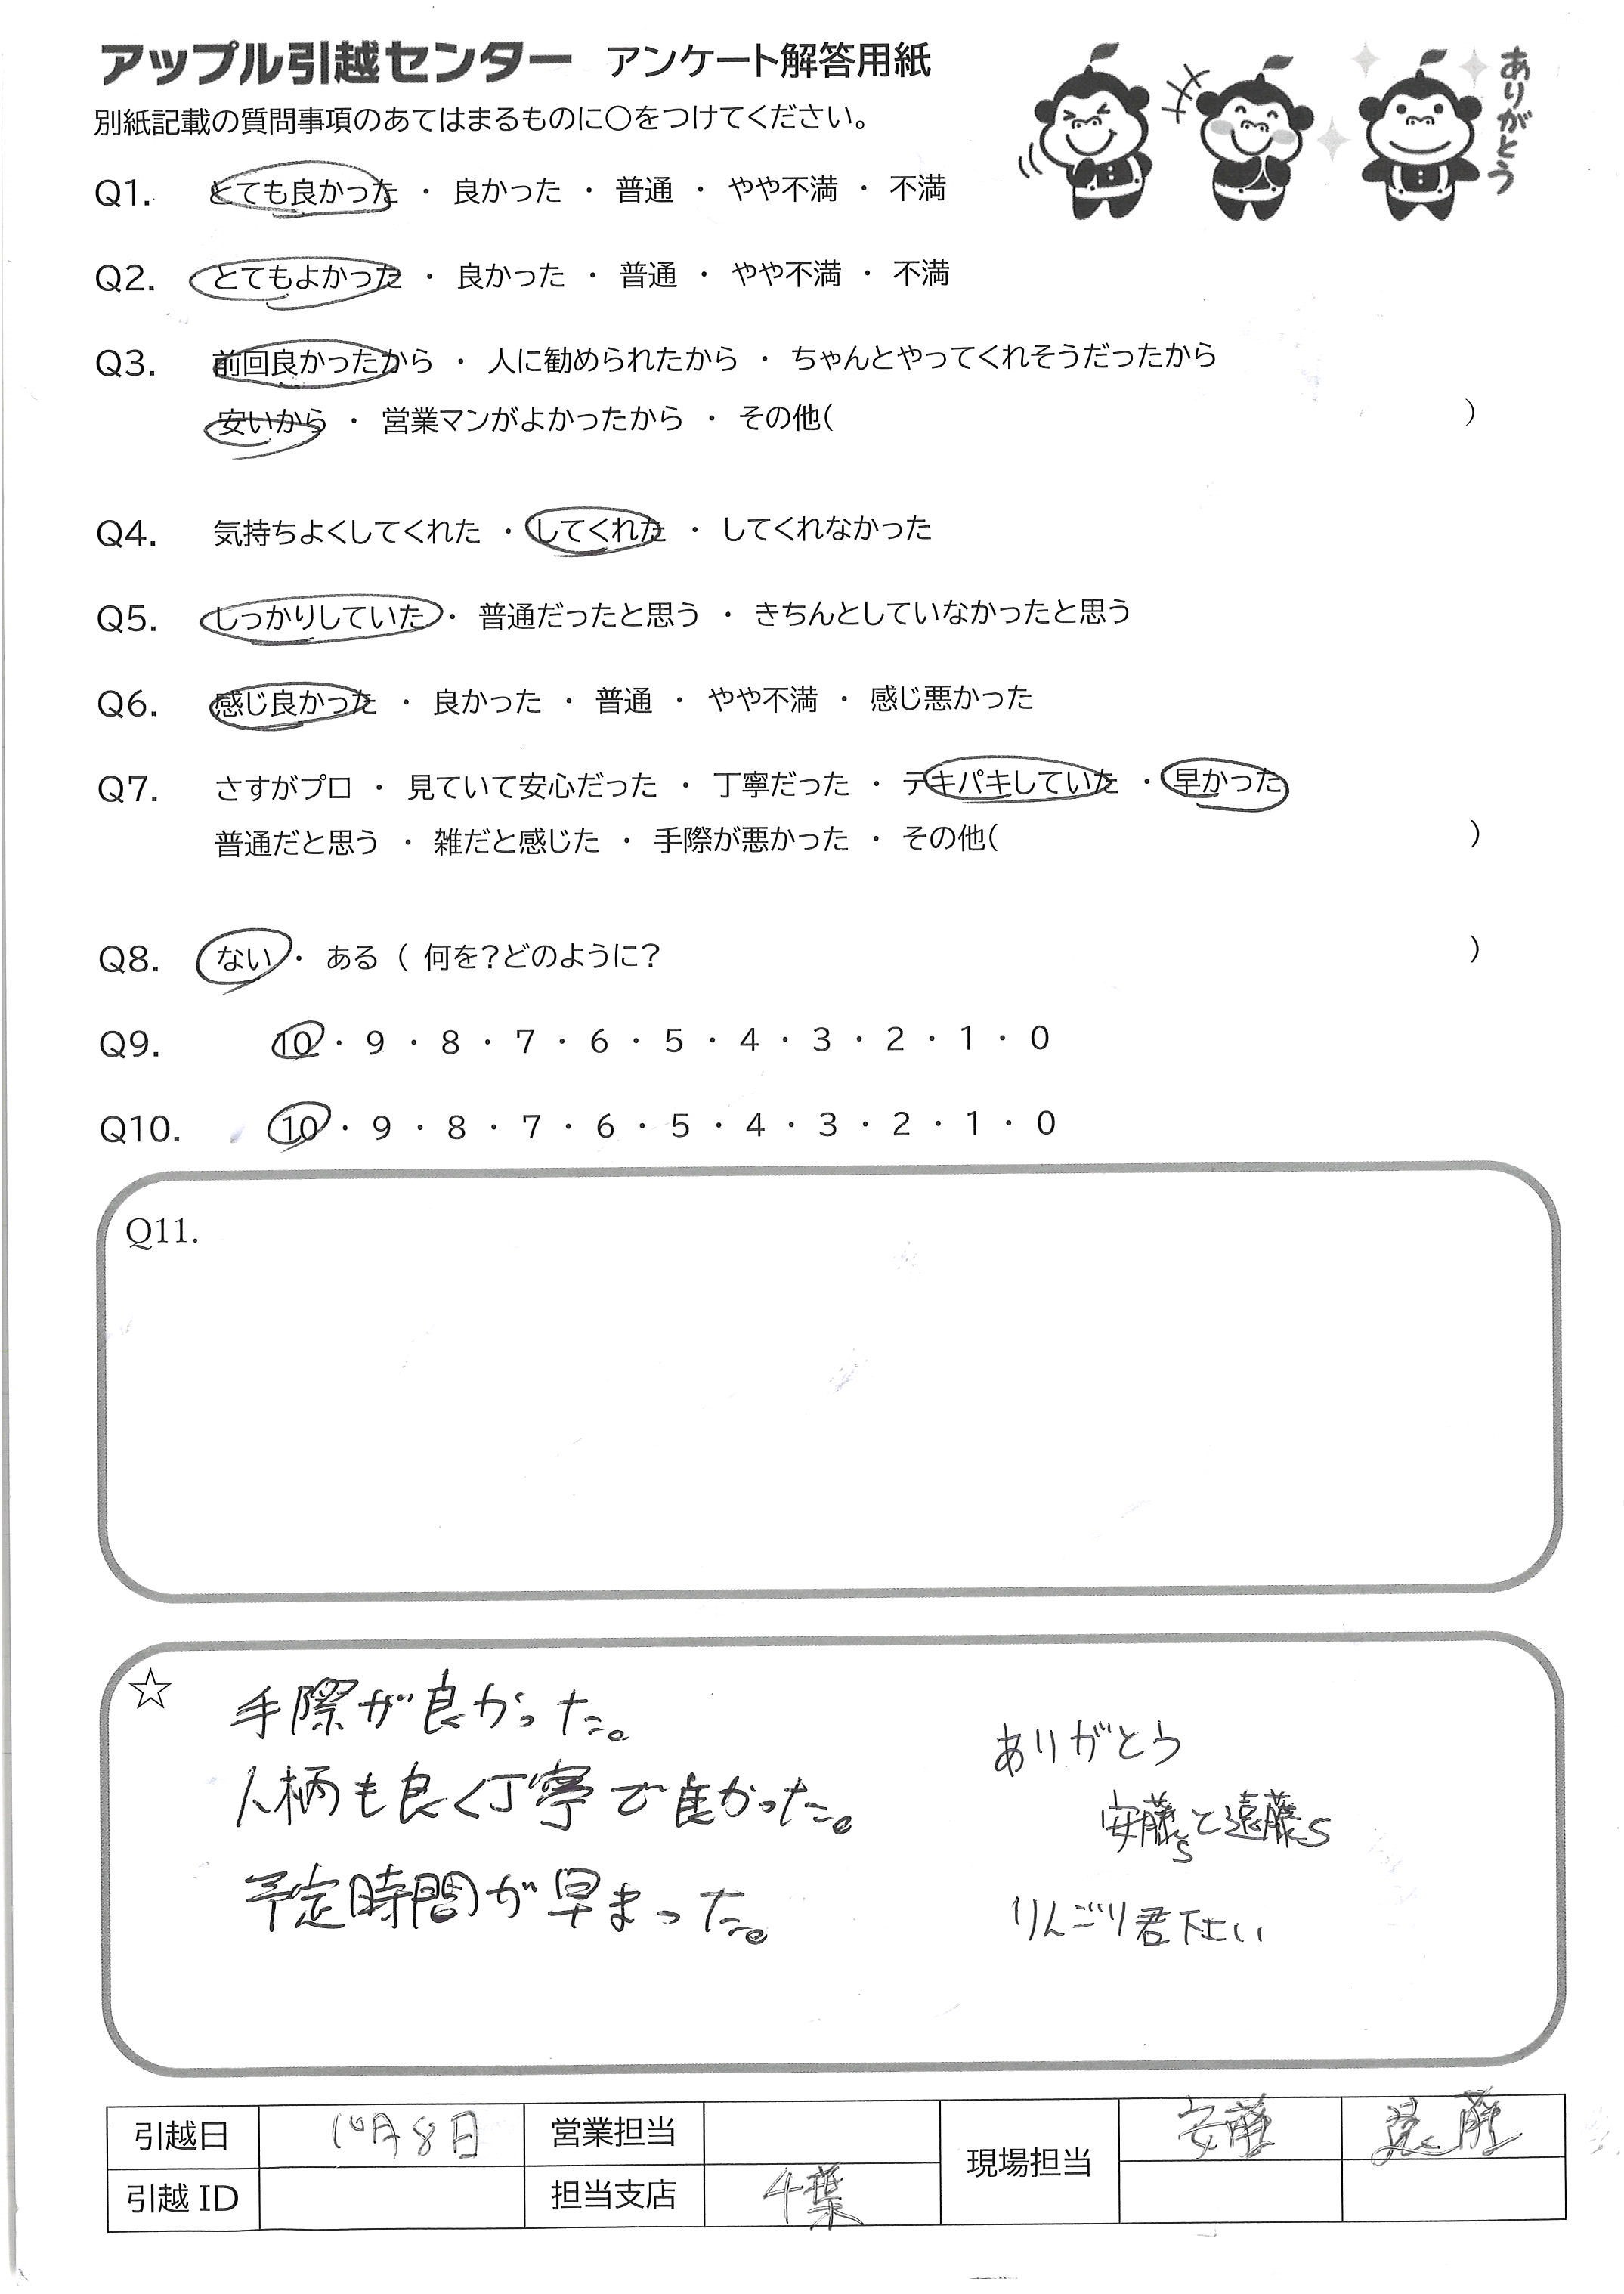 アップル引越センター アンケート解答用紙
ありがとう
別紙記載の質問事項のあてはまるものに○をつけてください。
Q1. とても良かった ・ 良かった ・ 普通 ・ やや不満 ・ 不満
Q2. とてもよかった ・ 良かった ・ 普通 ・ やや不満 ・ 不満
Q3. 前回良かったから ・ 人に勧められたから ・ ちゃんとやってくれそうだったから
安いから ・ 営業マンがよかったから ・ その他( )
Q4. 気持ちよくしてくれた ・ してくれた ・ してくれなかった
Q5. しっかりしていた ・ 普通だったと思う ・ きちんとしていなかったと思う
Q6. 感じ良かった ・ 良かった ・ 普通 ・ やや不満 ・ 感じ悪かった
Q7. さすがプロ ・ 見ていて安心だった ・ 丁寧だった ・ テキパキしていた ・ 早かった
普通だと思う ・ 雑だと感じた ・ 手際が悪かった ・ その他( )
Q8. ない ・ ある ( 何を?どのように? )
Q9. 10 ・ 9 ・ 8 ・ 7 ・ 6 ・ 5 ・ 4 ・ 3 ・ 2 ・ 1 ・ 0
Q10. 10 ・ 9 ・ 8 ・ 7 ・ 6 ・ 5 ・ 4 ・ 3 ・ 2 ・ 1 ・ 0
Q11.
☆ 手際が良かった。
人柄も良く丁寧で良かった。
予定時間が早まった。
ありがとう
安藤sと遠藤s
りんごり君下さい
引越日 10月8日 営業担当 現場担当 安藤 遠藤
引越ID 担当支店 千葉